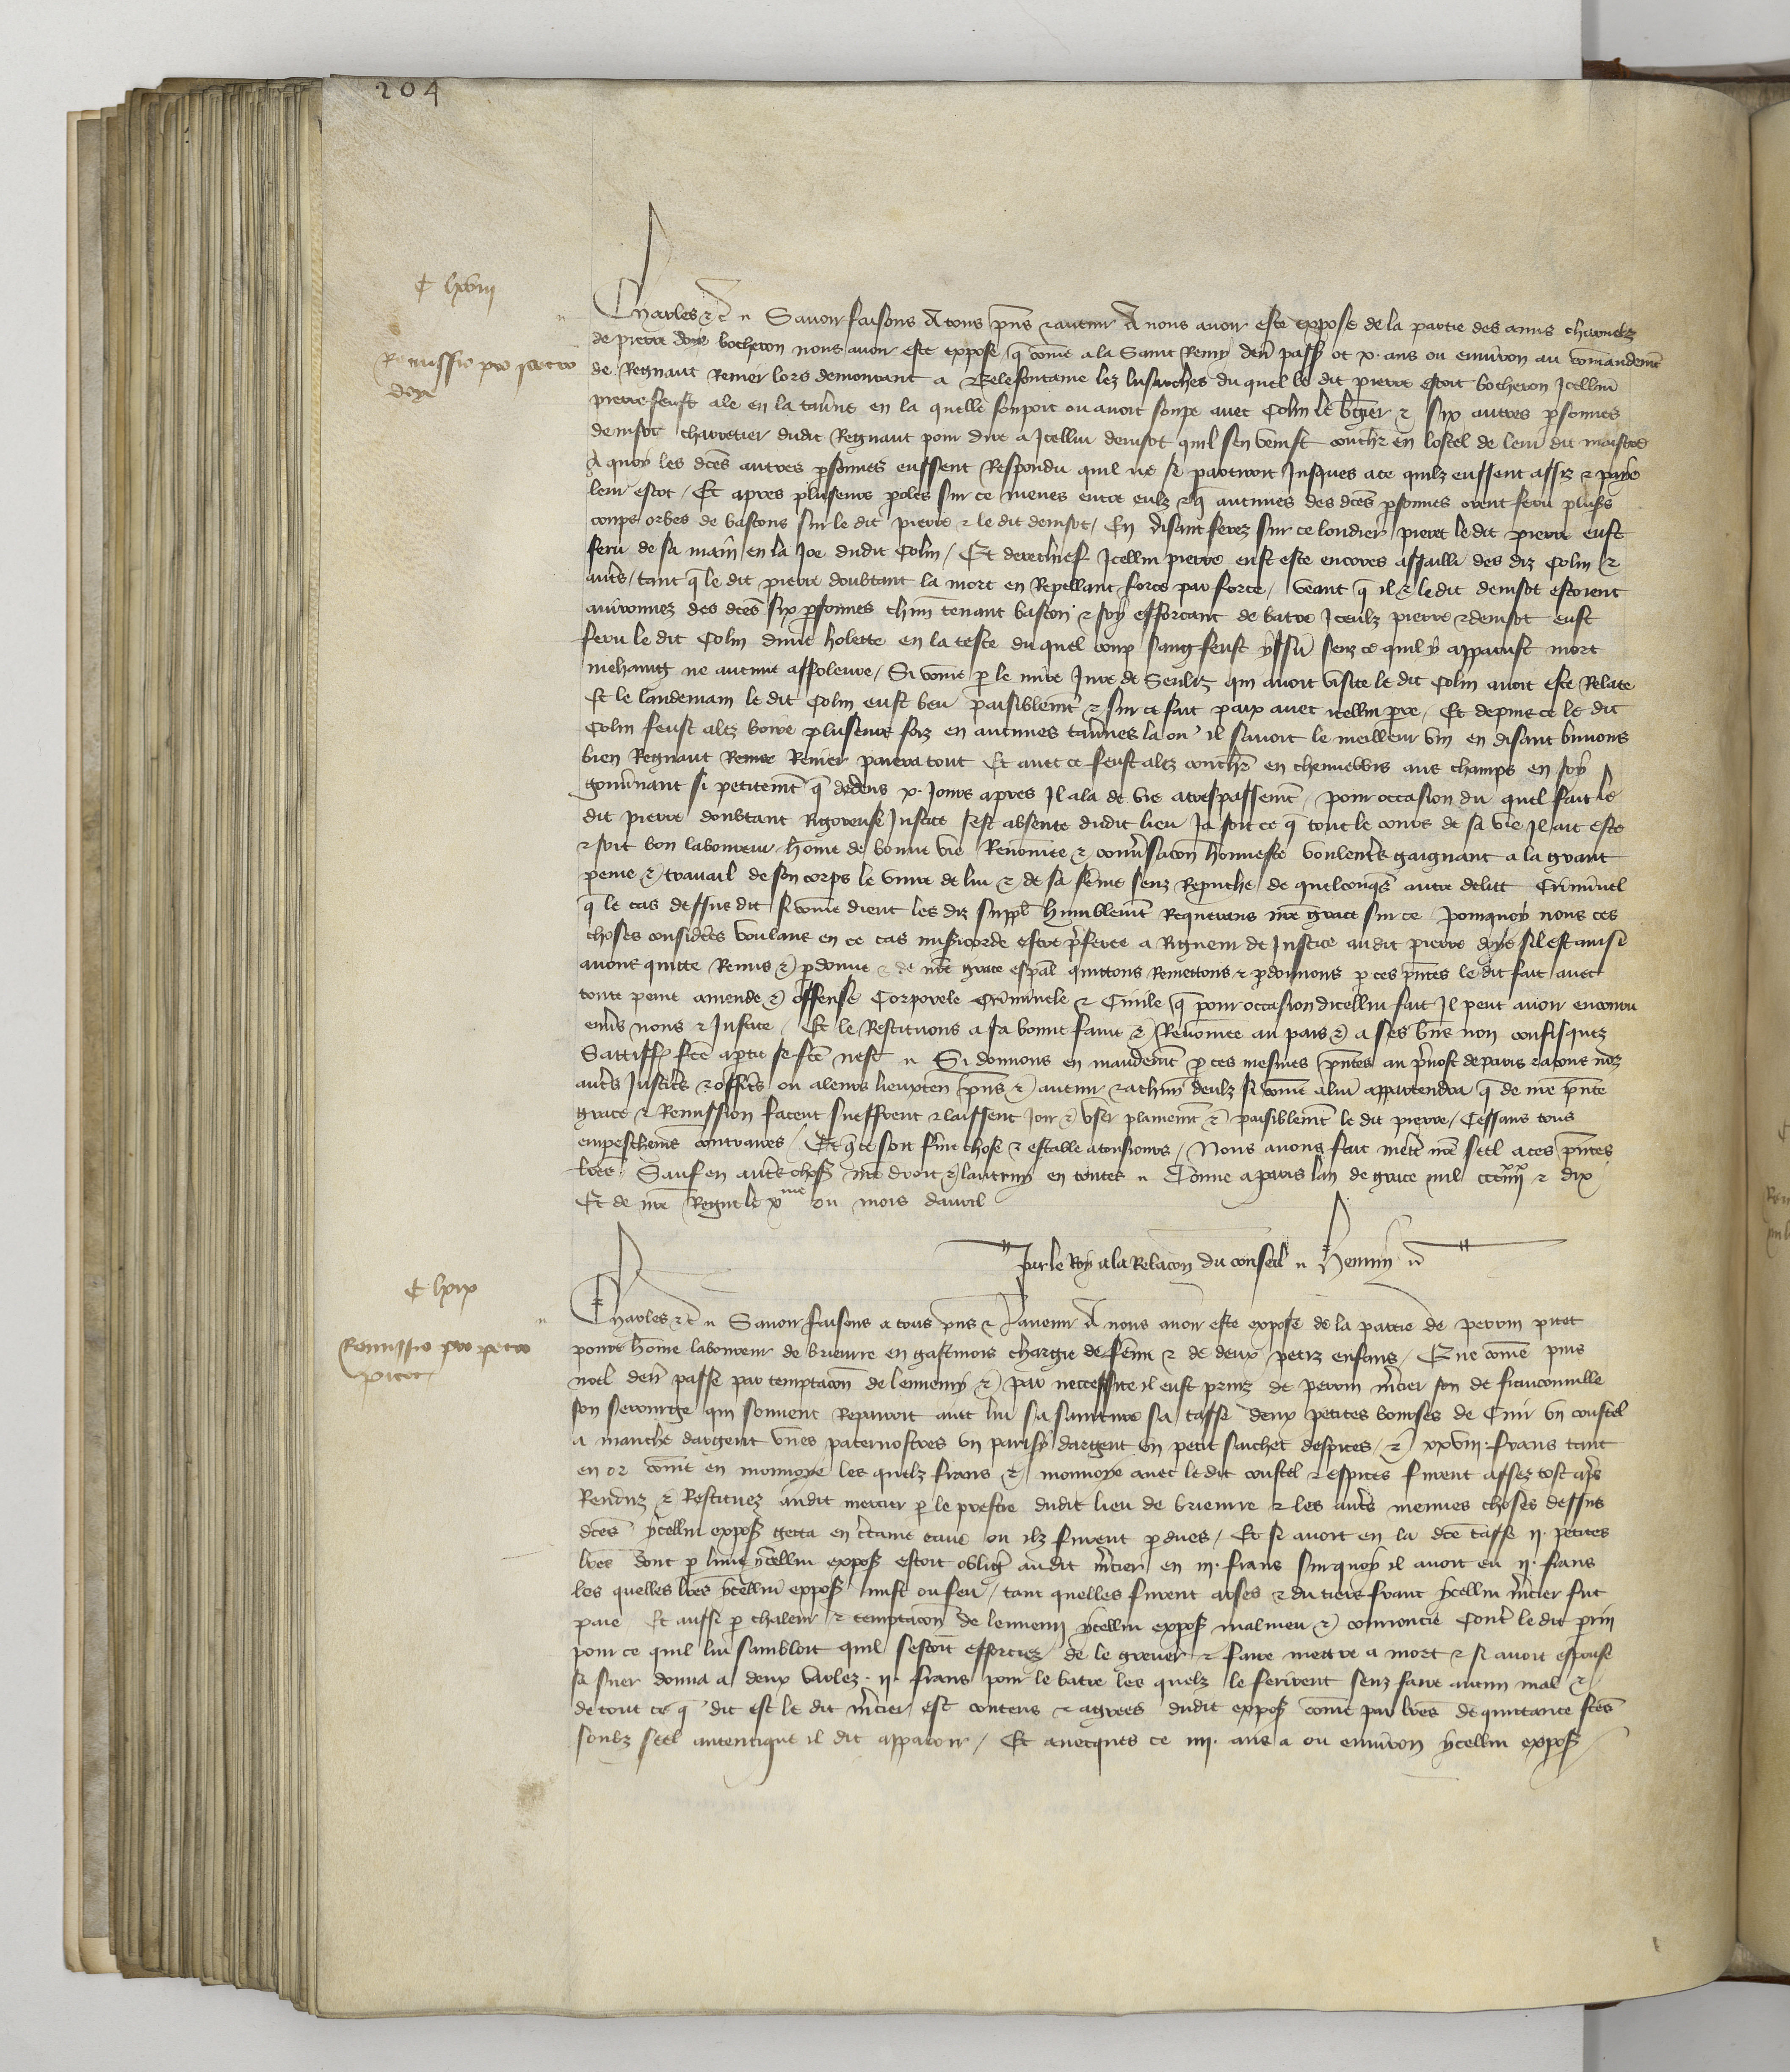 204
C lxviii
Remissio pro petro
doye
Charles etc. Savoir faisons A tous pns et avenir A nous avoir este expose de la partie des amis charnelz
de pierre doye bocheron nous avoir este expose q come a la Saint Remy derr passe ot x. ans ou environ au comandemt
de Regnaut Remer lors demourant a Belefontaine lez lusarches du quel le dit pierre estoit bocheron Icellui
pierre feust ale en la tavne en la quelle souppoit ou avoit souppe avec Colin le bgier et six autres psonnes
denisot charretier dudit Regnaut pour dire a Icellui denisot quil sen venist couchr en lostel de leur dit maistre
A quoy les dces autres psonnes eussent Respondu quil ne se partiroit Jusques ace quilz eussent assiz et paye
leur escot / Et apres pluseurs poles sur ce meues entre eulz et q aucunes des dces psonnes orent feru pluss
coups orbes de bastons sur le dit pierre et le dit denisot / En disant ferez sur ce loudier pieret le dit pierre eust
feru de sa main en la Joe dudit Colin / Et derechief Icellui pierre eust este encores assailli des diz Colin et
autrs / tant q le dit pierre doubtant la mort en Repellant force par force / veant q il et le dit denisot estoient
avironnez des dces six psonnes chun tenant baston et soy efforcant de batre Iceulz pierre et denisot eust
feru le dit Colin dune holette en la teste du quel coup sang feust yssu senz ce quil y apparust mort
mehaing ne aucune affoleure / Si come p le mire Jure de Senliz qui avoit visite le dit Colin avoit este Relate
Et le landemain le dit Colin eust beu paisiblemt et sur ce fait paix avec icellui pre / Et depuis ce le dit
Colin feust alez boire pluseurs foiz en aucunes tavnes la ou il savoit le meilleur vin en disant buvons
bien Regnaut Remer Remer paiera tout Et avec ce feust alez couchr en chenevieres aus champs en soy
gouvnant si petitemt q dedens x. Jours apres Il ala de vie a trespassemt / pour occasion du quel fait le
dit pierre doubtant Rigoreuse Justice sest absente dudit lieu Ja soit ce q tout le cours de sa vie Il ait este
et soit bon laboureur home de bonne vie Renomee et convsacon honneste voulentrs gaignant a la grant
peine et travail de son corps le vivre de lui et de sa feme senz Reprouche de quelconqs autre delict Criminel
q le cas dessus dit si come dient les diz suppl humblemt Requerans nre grace sur ce pourquoy nous ces
choses considerees voulans en ce cas misicorde estre pferee a Rigueur de Justice audit pierre doye sil est ainsi
avons quitte Remis et pdonne et de nre grace espal quittons Remettons et pdonnons p ces pntes le dit fait avec
toute peine amende et offense Corporele Criminele et Civile q pour occasion dicellui fait Il peut avoir encouru
envs nous et Justice / Et le Restituons a sa bonne fame et Renomee au pais et a ses bns non confisquez
Satiffon fce a ptie se fce nest Si donnons en mandemt p ces mesmes pntes au pvost de paris et a tous noz
autrs Justicrs et officrs ou a leurs lieuxten pns et avenir et achun deulz si come a lui appartendra q de nre pnte
grace et Remission facent sueffrent et laissent Joir et User plainemt et paisiblemt le dit pierre / Cessans tous
empeschems contraires / Et q ce soit ferme chose et estable a tousjours / Nous avons fait mettr nre scel aces pntes
lres / Sauf en autrs choses nre droit et lautruy en toutes Donne a paris lan de grace mil ccc iiii xx et dix
Et de nre Regne le x me ou mois davril
Par le Roy a la Relacon du conseil Hemin
C lxix
Remissio pro petro
picot
Charles etc. Savoir faisons a tous pns et avenir A nous avoir este expose de la partie de perrin picot
povre home laboureur de brieurre en gastinois chargie de feme et de deux petiz enfans / Que come puis
noel derr passe par temptacon de lennemy et par neccessite il eust prinz de perrin mcier son de franconville
son serourge qui souvent Reparoit avec lui sa sainture sa tasse deux petites bourses de Cuir un coustel
a manche dargent unes paternostres un parisy dargent un petit sachet despices / et xxviii. frans tant
en or come en monnoye les quelz frans et monnoye avec le dit coustel et espices furent assez tost aprs
Renduz et Restituez audit mercier p le prestre dudit lieu de brieurre et les autrs menues choses dessus
dces ycellui expos getta en ctaine eaue ou ilz furent pdues / Et si avoit en la dce tasse ii. petites
lres dont p lune ycellui expos estoit oblige audit mcier en iii. frans sur quoy il avoit eu ii. frans
les quelles lres ycellui expos mist ou feu / tant quelles furent arses et du tiers franc ycellui mcier fut
paie Et aussi p chaleur et temptacon de lennemi ycellui expos malmeu et courroucie Contr le dit prin
pour ce quil lui sambloit quil sestoit efforciez de le grever et faire mettre a mort et si avoit espouse
sa suer donna a deux varlez. ii. frans pour le batre les quelz le ferirent senz faire aucun mal et
de tout ce q dit est le dit mcier est contens et agrees dudit expos come par lres de quittance fces
soubz scel autentique il dit apparoir / Et avecques ce iiii. ans a ou environ ycellui expos